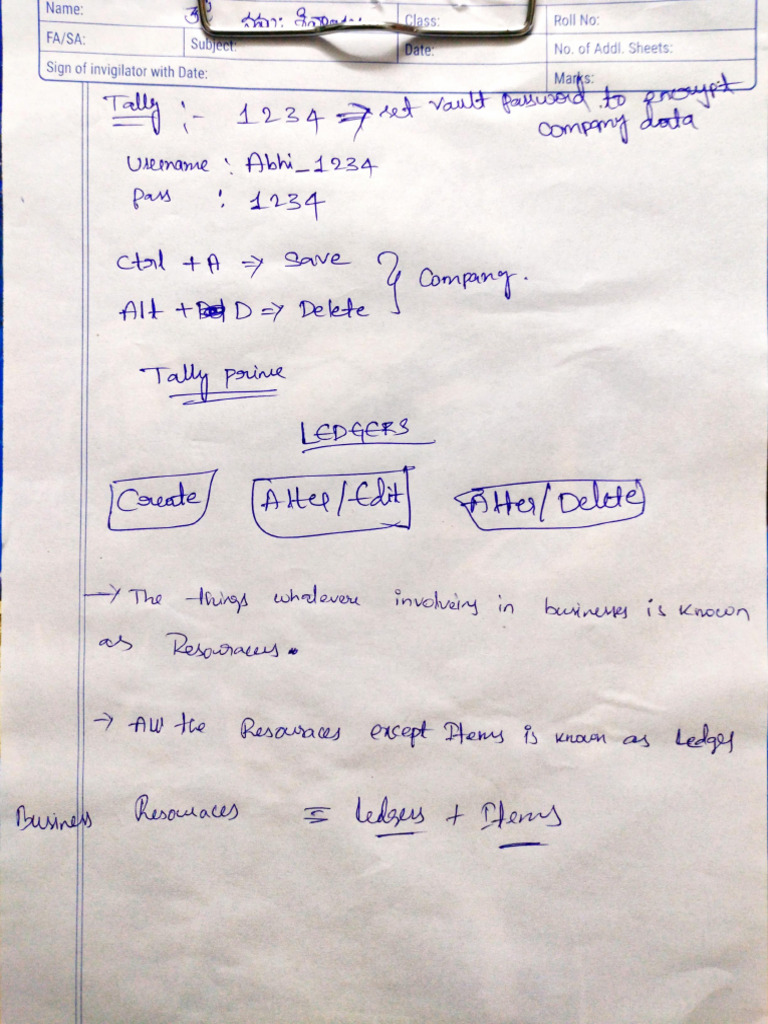 Name:
Class:
Roll No:
FA/SA:
Subject:
Date:
No. of Addl. Sheets:
Sign of invigilator with Date:
Marks:
Tally :- 1234 => set vault password to encrypt
company data
Username : Abhi_1234
Pass : 1234
Ctrl + A => Save
Alt + D => Delete } Company.
Tally prime
LEDGERS
Create Alter/Edit Alter/Delete
-> The things whatevere involveing in businesses is known
as Resouraces.
-> All the Resouraces except Items is known as Ledges
Business Resouraces = Ledgers + Items